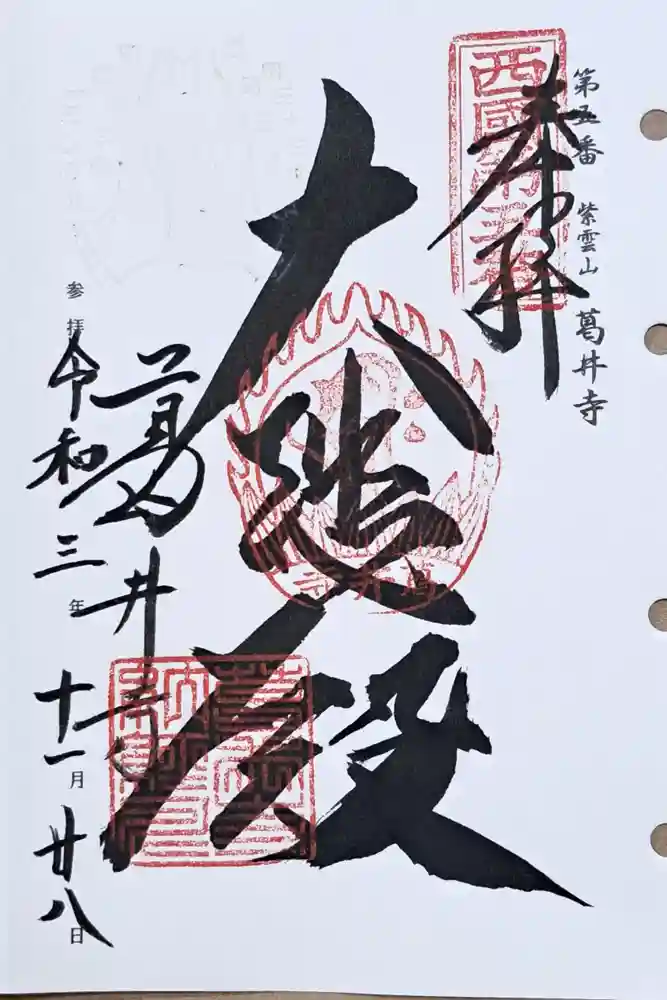 第五番　紫雲山　葛井寺
奉拝
西國第五番
大悲殿
葛井寺
葛井寺
参拝
令和三年十一月廿八日